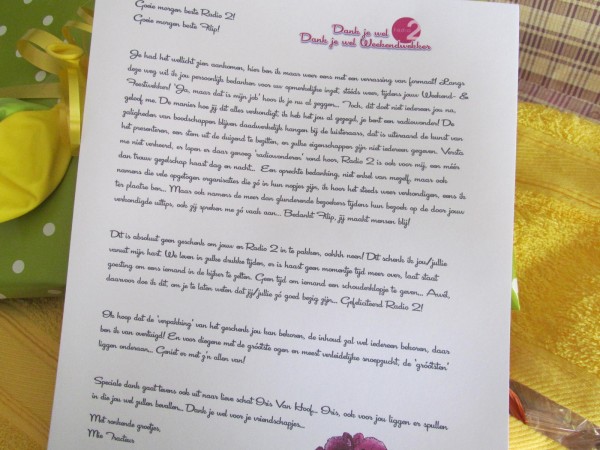 Gooie morgen beste Radio 2!
Gooie morgen beste Filip!
Dank je wel
radio 2
Dank je wel Weekendwekker
Je had het wellicht zien aankomen, hier ben ik maar weer eens met een verrassing van formaat! Langs
deze weg wil ik jou persoonlijk bedanken voor uw opmerkelijke inzet, stééds weer, tijdens jouw Weekend- &
Feestwekker! 'Ja, maar dat is mijn job' hoor ik je nu al zeggen... Toch, dit doet niet iedereen jou na,
geloof me. De manier hoe jij dit alles verkondigt, ik heb het jou al gezegd, je bent een radiowonder! De
zaligheden van boodschappen blijven daadwerkelijk hangen bij de luisteraars, dat is uiteraard de kunst van
het presenteren, een stem uit de duizend te bezitten, en zulke eigenschappen zijn niet iedereen gegeven. Versta
me niet verkeerd, er lopen er daar genoeg 'radiowonderen' rond hoor, Radio 2 is ook voor mij, een méér
dan trouw gezelschap haast dag en nacht... Een oprechte bedanking, niet enkel van mezelf, maar ook
namens die vele opgelogen organisaties die zó in hun nopjes zijn, ik hoor het steeds weer verkondigen, eens ik
ter plaatse ben... Maar ook namens de meer dan glunderende bezoekers tijdens hun bezoek op de door jouw
verkondigde uittips, ook zij spreken me zó vaak aan... Bedankt Filip, jij maakt mensen blij!
Dit is absoluut geen geschenk om jouw en Radio 2 in te pakken, oohhh neen! Dit schenk ik jou/jullie
vanuit mijn hart. We leven in zulke drukke tijden, er is haast geen momentje tijd meer over, laat staat
goesting om eens iemand in de kijker te zetten. Geen tijd om iemand een schouderklopje te geven... Awel,
daarvoor doe ik dit, om je te laten weten dat jij/jullie zó goed bezig zijn... Gefeliciteerd Radio 2!
Ik hoop dat de 'verpakking' van het geschenk jou kan bekoren, de inhoud zal wel iedereen bekoren, daar
ben ik van overtuigd! En voor diegene met de gróótste ogen en meest verleidelijke snoepzucht, de 'gróótsten'
liggen onderaan... Geniet er met z'n allen van!
Speciale dank gaat tevens ook uit naar lieve schat Iris Van Hoof... Iris, ook voor jou liggen er spullen
in die jou wel zullen bevallen... Dank je wel voor je vriendschapjes...
Met ronkende groetjes,
Mie Tracteur